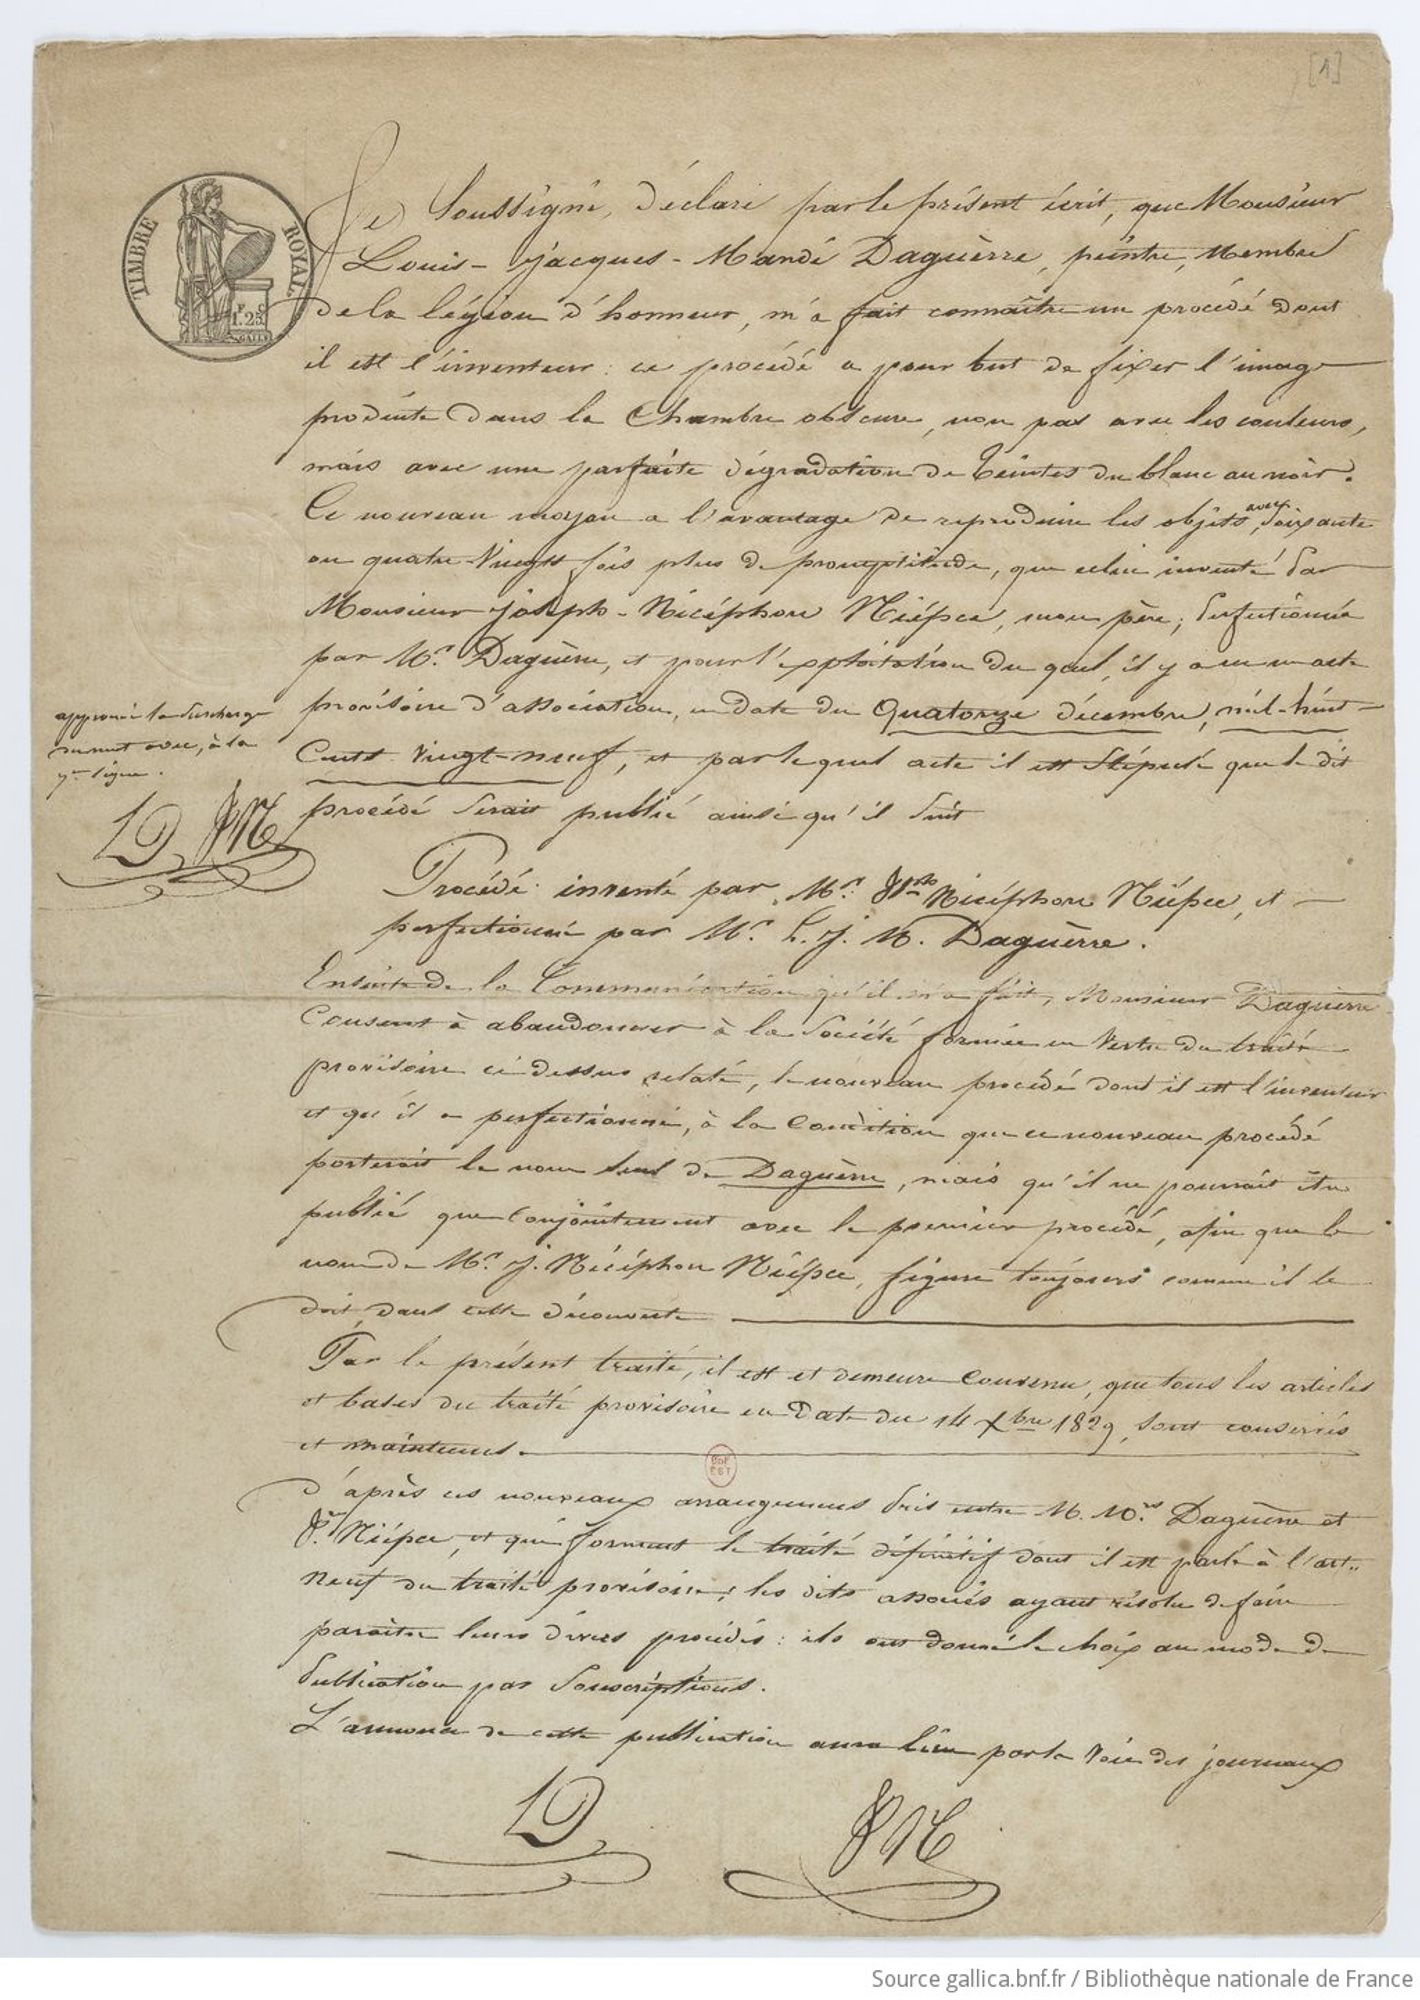 [1]
TIMBRE ROYAL
F. C
1.25
Je Soussigné, déclare par le présent écrit, que Monsieur
Louis-Jacques-Mandé Daguèrre, peintre, Membre
de la légion d'honneur, m'a fait connaître un procédé dont
il est l'inventeur: ce procédé a pour but de fixer l'image
produite dans la Chambre obscure, non pas avec les couleurs,
mais avec une parfaite dégradation de teintes du blanc au noir.
Ce nouveau moyen a l'avantage de reproduire les objets, avec soixante
ou quatre Vingts fois plus de promptitude, que celui inventé par
Monsieur Joseph-Nicéphore Niépce, mon père, perfectionné
par Mr. Daguèrre, et pour l'exploitation du quel, il y a eu un acte
provisoire d'association, en date du Quatorze décembre, mil-huit-
Cents Vingt-neuf, et par lequel acte il est stipulé que le dit
procédé serait publié ainsi qu'il suit
approuvé la surcharge
du mot avec, à la
7me ligne.
LD JN
Procédé inventé par Mr. Jph Nicéphore Niépce, et
perfectionné par Mr. L. J. M. Daguèrre.
Ensuite de la Communication qu'il m'a fait, Monsieur Daguèrre
Consent à abandonner à la Société formée en Vertu du traité
provisoire ci dessus relaté, le nouveau procédé dont il est l'inventeur
et qu'il a perfectionné, à la Condition que ce nouveau procédé
porterait le nom seul de Daguèrre, mais qu'il ne pourrait être
publié que conjointement avec le premier procédé, afin que le
nom de Mr. J. Nicéphore Niépce, figure toujours comme il le
doit, dans cette découverte
Par le présent traité, il est et demeure Convenu, que tous les articles
et bases du traité provisoire en Date du 14 Xbre 1829, sont conservés
et maintenus.
BnF
EST
D'après ces nouveaux arrangemens pris entre M. Mrs Daguèrre et
Jre Niépce, et qui forment le traité définitif dont il est parlé à l'art..
neuf du traité provisoire; les dits associés ayant résolu de faire
paraître leurs divers procédés: ils ont donné le choix au mode de
Publication par Souscriptions.
L'annonce de cette publication aura lieu par la Voie des journaux
LD JN
Source gallica.bnf.fr / Bibliothèque nationale de France